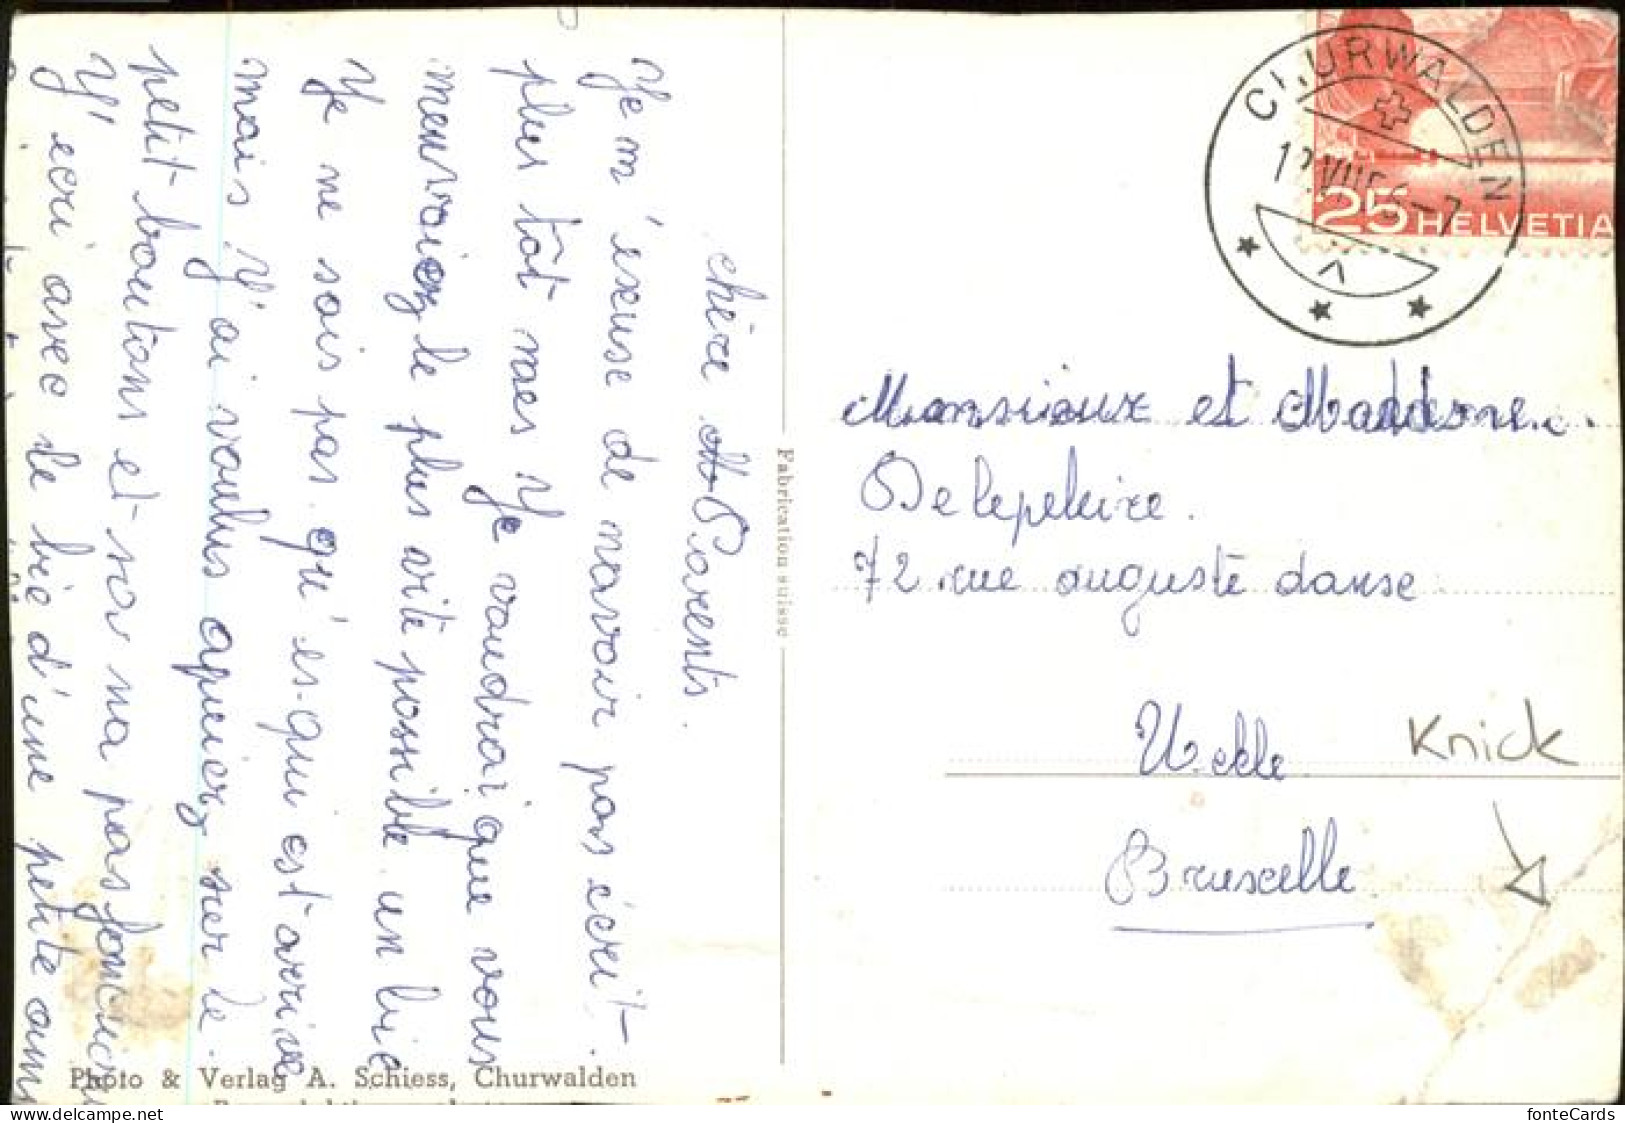 chère Parents.
Je m'éxcuse de navoir pas écrit
plus tôt maes Je voudrai que vous
menvoiez le plus vite possible un bic
Je ne sais pas qu'es-qui est arrive
mais J'ai voulus apuiez sur le
petit boutions et sa na pas
J'ecri avec le bic d'une petite
Photo & Verlag A. Schiess, Churwalden
Fabrication suisse
CHURWALDEN
25 HELVETIA
Monsieux et Maddame.
Delepeleire.
72 rue auguste danse
Uckle
Knick
Bruxelle
fonteCards